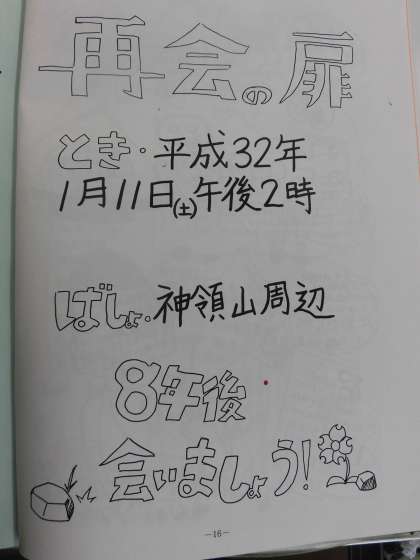 再会の扉
とき・平成32年
1月11日(土)午後2時
ばしょ・神領山周辺
8年後
会いましょう!
-16-